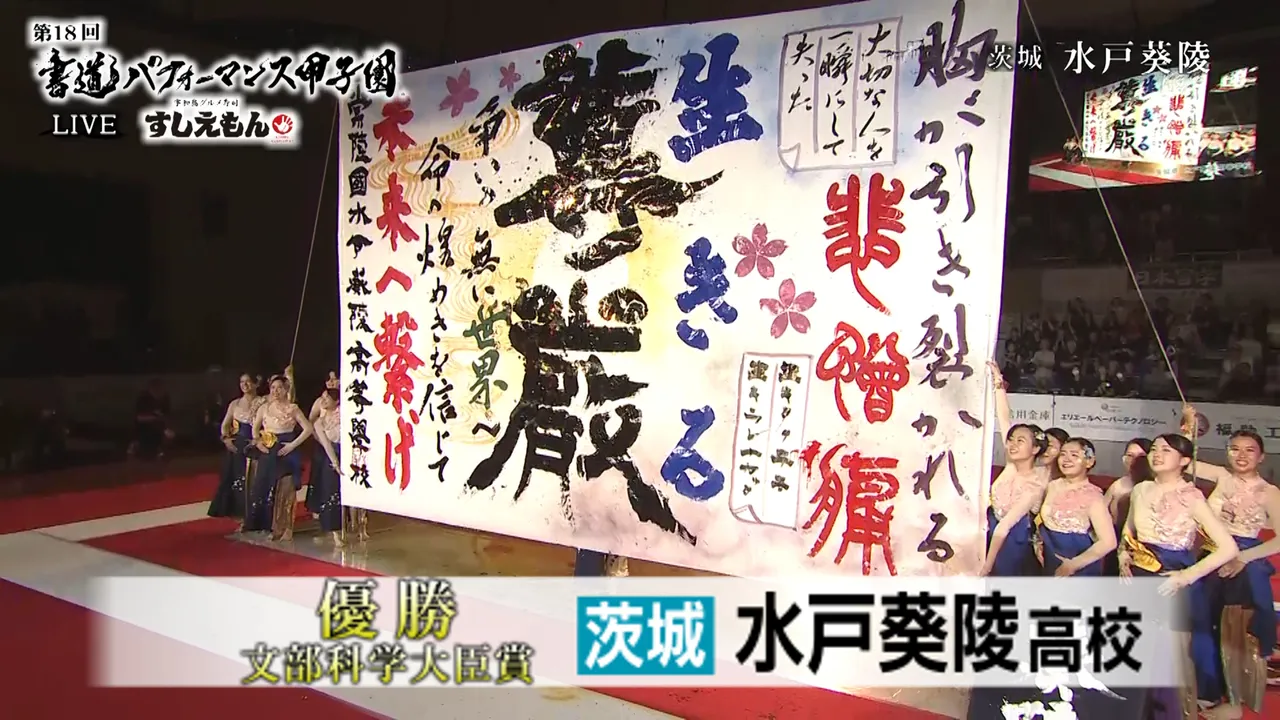 第18回
書道パフォーマンス甲子園
LIVE
すしえもん
茨城 水戸葵陵
胸が引き裂かれる
大切な人を
一瞬にして
失った
悲憎痛
生きる
尊厳
争いの無い世界へ
命の煌めきを信じて
未来へ繋げ
常陸國水戸葵陵高等學校
エリエールペーパーテクノロジー
優勝
文部科学大臣賞
茨城
水戸葵陵高校